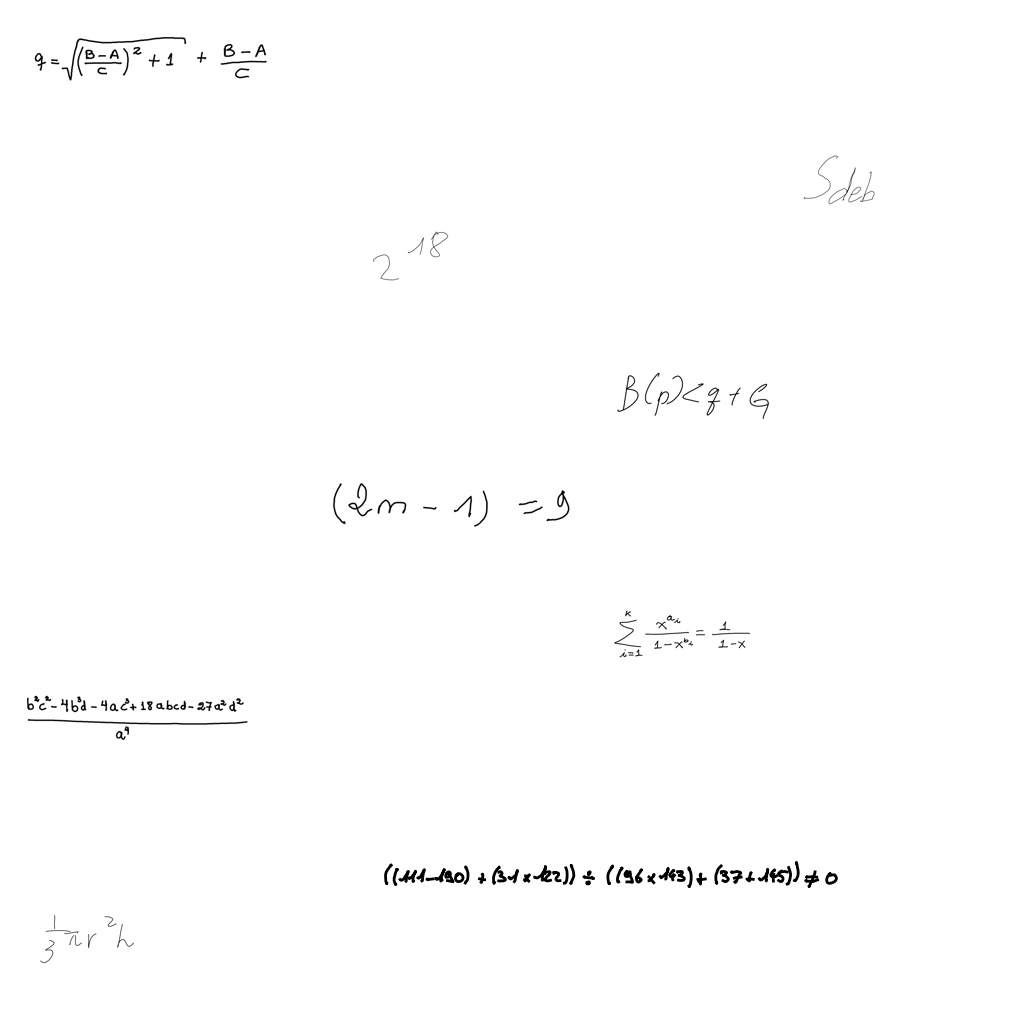 q = \sqrt{(\frac{B-A}{C})^2+1} + \frac{B-A}{C}
S_{deb}
2^{18}
B(p)<q+G
(2n-1)=9
\sum_{i=1}^{k} \frac{x^{a_i}}{1-x^{b_i}} = \frac{1}{1-x}
\frac{b^2c^2-4b^3d-4ac^3+18abcd-27a^2d^2}{a^4}
((111-190)+(31×122))÷((96×143)+(37+145))≠0
\frac{1}{3}πr^2h